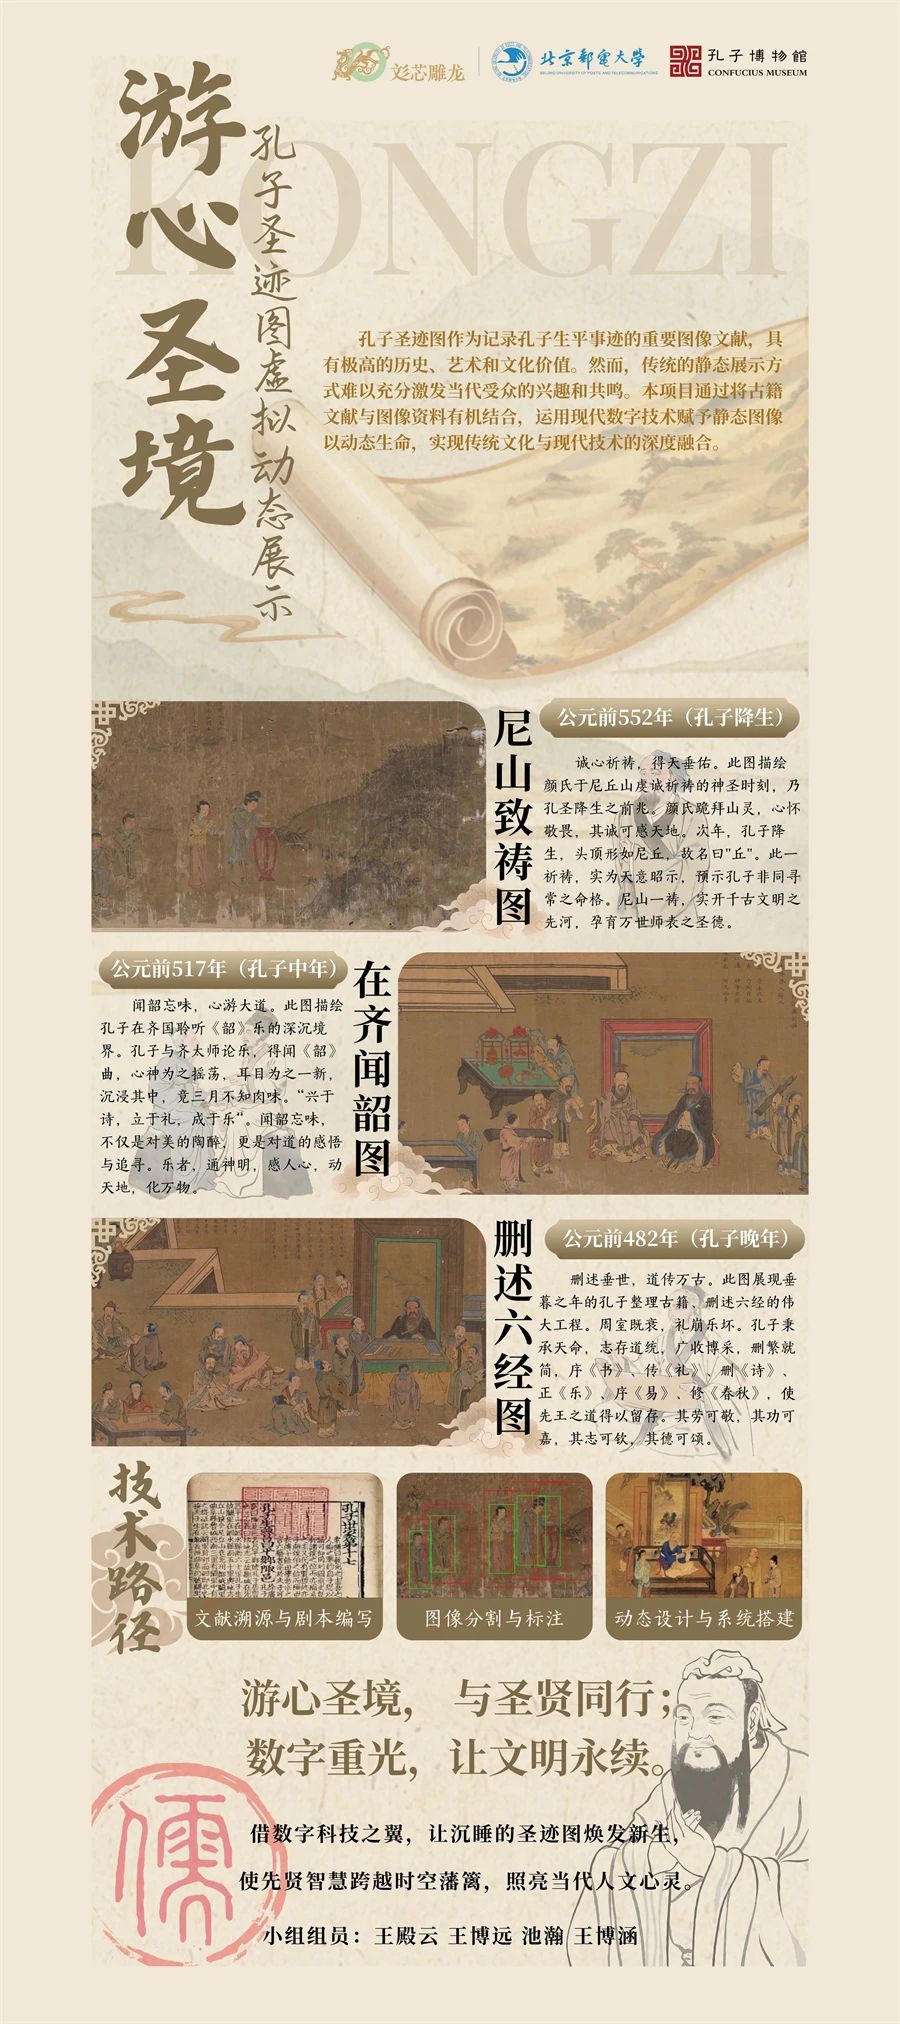 彣芯雕龙
北京邮电大学
BEIJING UNIVERSITY OF POSTS AND TELECOMMUNICATIONS
孔子博物館
CONFUCIUS MUSEUM
KONGZI
游心圣境
孔子圣迹图虚拟动态展示
孔子圣迹图作为记录孔子生平事迹的重要图像文献，具
有极高的历史、艺术和文化价值。然而，传统的静态展示方
式难以充分激发当代受众的兴趣和共鸣。本项目通过将古籍
文献与图像资料有机结合，运用现代数字技术赋予静态图像
以动态生命，实现传统文化与现代技术的深度融合。
尼山致祷图
公元前552年（孔子降生）
诚心祈祷，得天垂佑。此图描绘
颜氏于尼丘山虔诚祈祷的神圣时刻，乃
孔圣降生之前兆。颜氏跪拜山灵，心怀
敬畏，其诚可感天地。次年，孔子降
生，头顶形如尼丘，故名曰"丘"。此一
祈祷，实为天意昭示，预示孔子非同寻
常之命格。尼山一祷，实开千古文明之
先河，孕育万世师表之圣德。
公元前517年（孔子中年）
在齐闻韶图
闻韶忘味，心游大道。此图描绘
孔子在齐国聆听《韶》乐的深沉境
界。孔子与齐太师论乐，得闻《韶》
曲，心神为之摇荡，耳目为之一新，
沉浸其中，竟三月不知肉味。“兴于
诗，立于礼，成于乐“。闻韶忘味，
不仅是对美的陶醉，更是对道的感悟
与追寻。乐者，通神明，感人心，动
天地，化万物。
删述六经图
公元前482年（孔子晚年）
删述垂世，道传万古。此图展现垂
暮之年的孔子整理古籍、删述六经的伟
大工程。周室既衰，礼崩乐坏。孔子秉
承天命，志存道统，广收博采，删繁就
简，序《书》、传《礼》、删《诗》、
正《乐》、序《易》、修《春秋》，使
先王之道得以留存。其劳可敬，其功可
嘉，其志可钦，其德可颂。
技术路径
文献溯源与剧本编写
图像分割与标注
动态设计与系统搭建
游心圣境，与圣贤同行；
数字重光，让文明永续。
儒
借数字科技之翼，让沉睡的圣迹图焕发新生，
使先贤智慧跨越时空藩篱，照亮当代人文心灵。
小组组员：王殿云 王博远 池瀚 王博涵